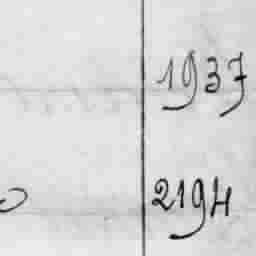 1937
2194